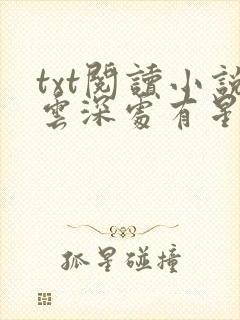 txt閱讀小說
雲深處有星
孤星碰撞